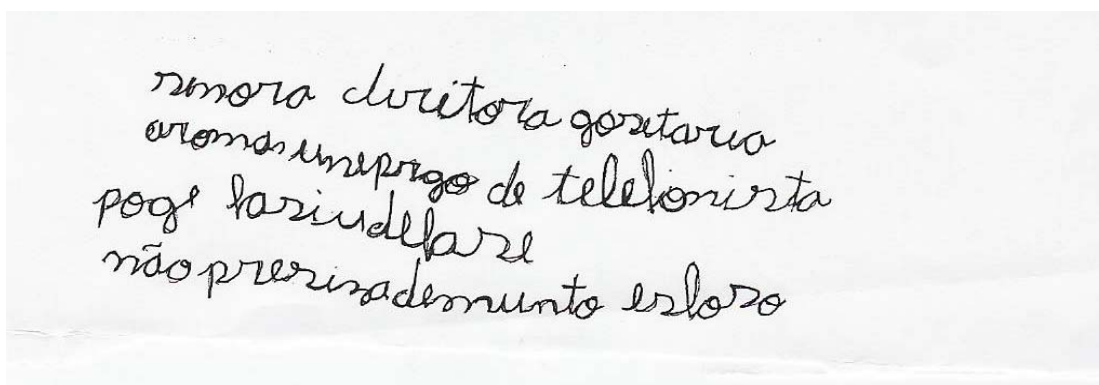 senora diritora gositaria
aromas umeprigo de telefonista
poge fasiudefase
não presizademunto esfoso